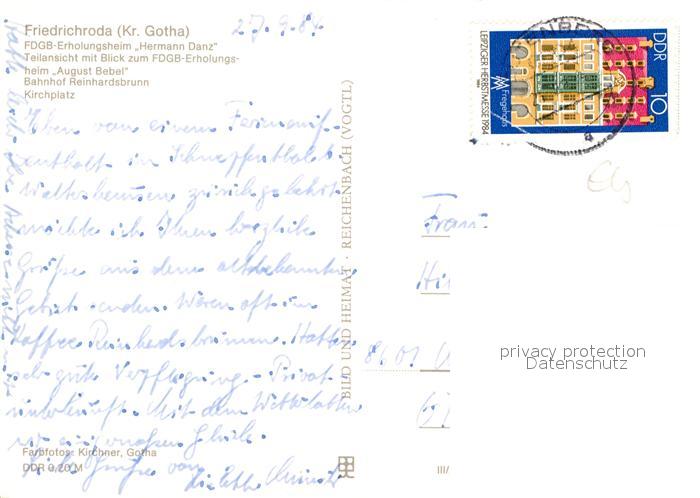 Friedrichroda (Kr. Gotha)
FDGB-Erholungsheim „Hermann Danz"
Teilansicht mit Blick zum FDGB-Erholungs-
heim „August Bebel"
Bahnhof Reinhardsbrunn
Kirchplatz
27.9.84
Eben von einem Ferienauf-
enthalt in Schnepfenthal
Waltershausen zurückgekehrt
möchte ich Ihnen herzliche
Grüße aus dem altbekannten
Gebiet senden. Waren oft im
Kaffee Reinhardsbrunn. Hatten
sehr gute Verpflegung. Privat-
unterkunft. Mit dem Wetter hatten
wir Glück
Grüße von
Farbfotos: Kirchner, Gotha
DDR 0,20 M
BILD UND HEIMAT · REICHENBACH (VOGTL)
III/
DDR
10
LEIPZIGER HERBSTMESSE 1984
Fregehaus
Frau
8601
privacy protection
Datenschutz